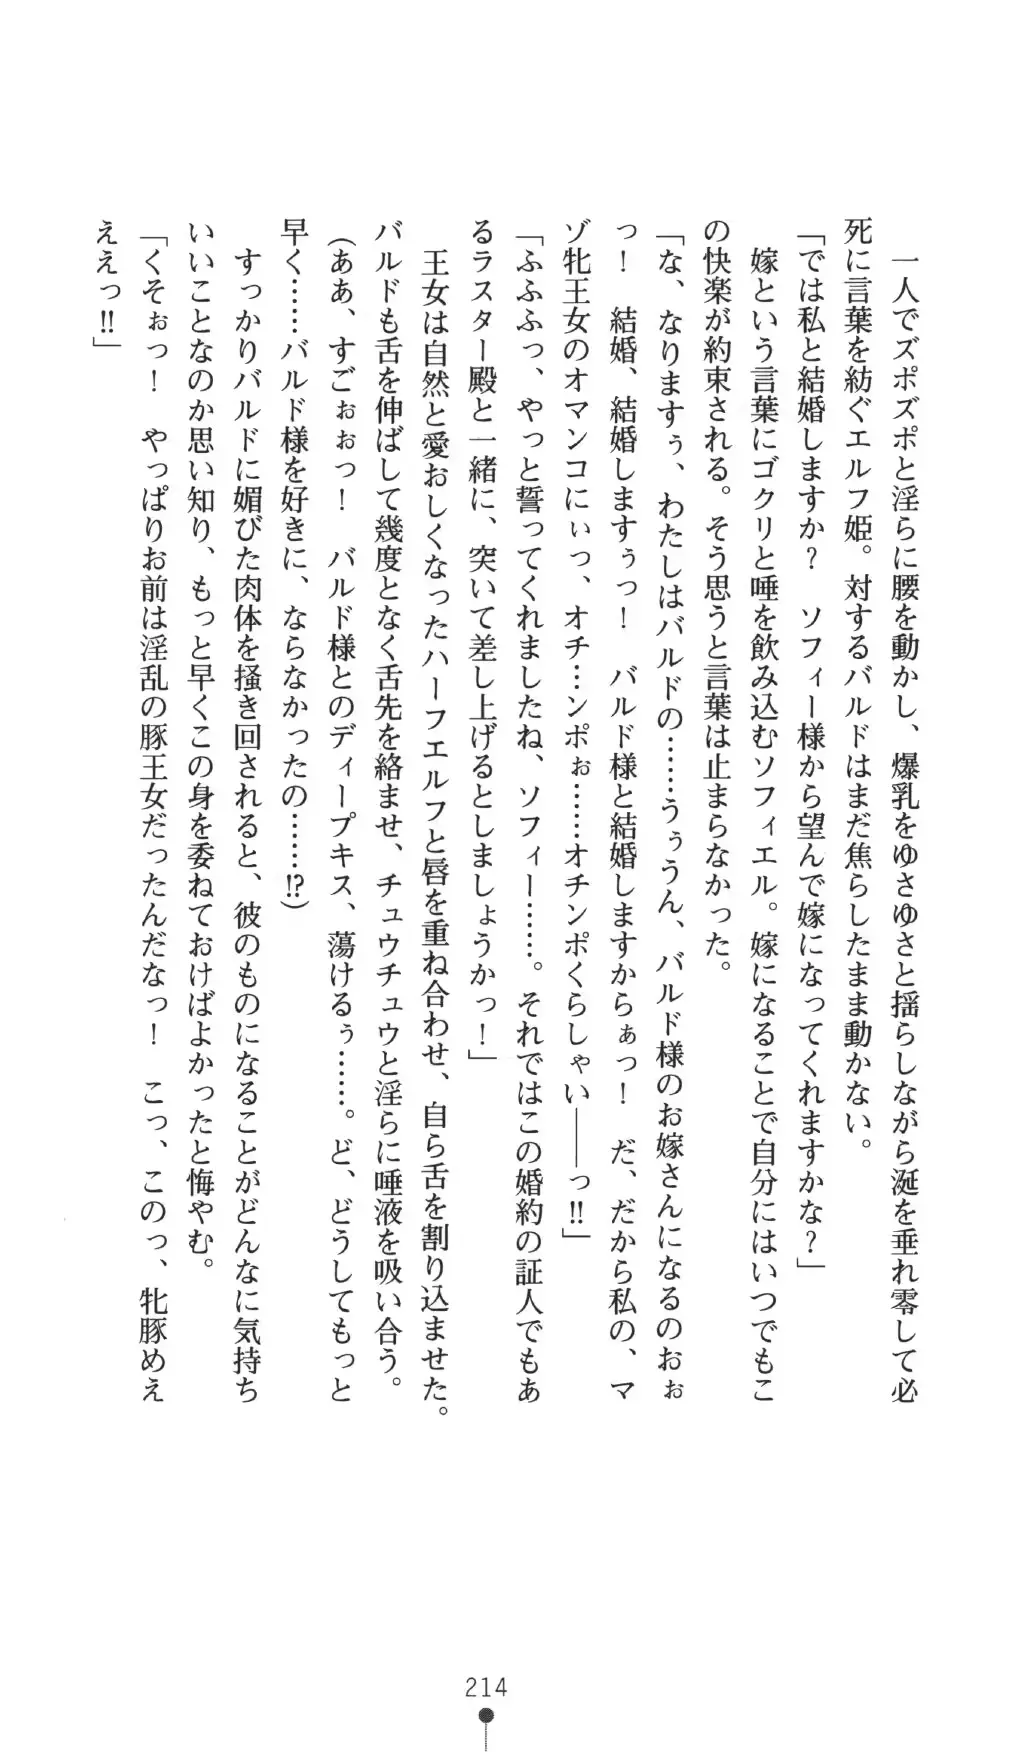 一人でズポズポと淫らに腰を動かし、爆乳をゆさゆさと揺らしながら涎を垂れ零して必
死に言葉を紡ぐエルフ姫。対するバルドはまだ焦らしたまま動かない。
「では私と結婚しますか？　ソフィー様から望んで嫁になってくれますかな？」
嫁という言葉にゴクリと唾を飲み込むソフィエル。嫁になることで自分にはいつでもこ
の快楽が約束される。そう思うと言葉は止まらなかった。
「な、なりますぅ、わたしはバルドの……うぅうん、バルド様のお嫁さんになるのおぉ
っ！　結婚、結婚しますぅっ！　バルド様と結婚しますからぁっ！　だ、だから私の、マ
ゾ牝王女のオマンコにぃっ、オチ…ンポぉ……オチンポくらしゃい――っ!!」
「ふふふっ、やっと誓ってくれましたね、ソフィー……。それではこの婚約の証人でもあ
るラスター殿と一緒に、突いて差し上げるとしましょうかっ！」
王女は自然と愛おしくなったハーフエルフと唇を重ね合わせ、自ら舌を割り込ませた。
バルドも舌を伸ばして幾度となく舌先を絡ませ、チュウチュウと淫らに唾液を吸い合う。
(ああ、すごぉぉっ！　バルド様とのディープキス、蕩けるぅ……。ど、どうしてもっと
早く……バルド様を好きに、ならなかったの……!?)
すっかりバルドに媚びた肉体を掻き回されると、彼のものになることがどんなに気持ち
いいことなのか思い知り、もっと早くこの身を委ねておけばよかったと悔やむ。
「くそぉっ！　やっぱりお前は淫乱の豚王女だったんだなっ！　こっ、このっ、牝豚めえ
ええっ!!」
214